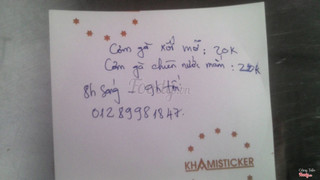 Cơm gà xối mỡ : 20K
Cơm gà chiên nước mắm : 20K
8h sáng - 9h tối
01289981847.
KHAMISTICKER